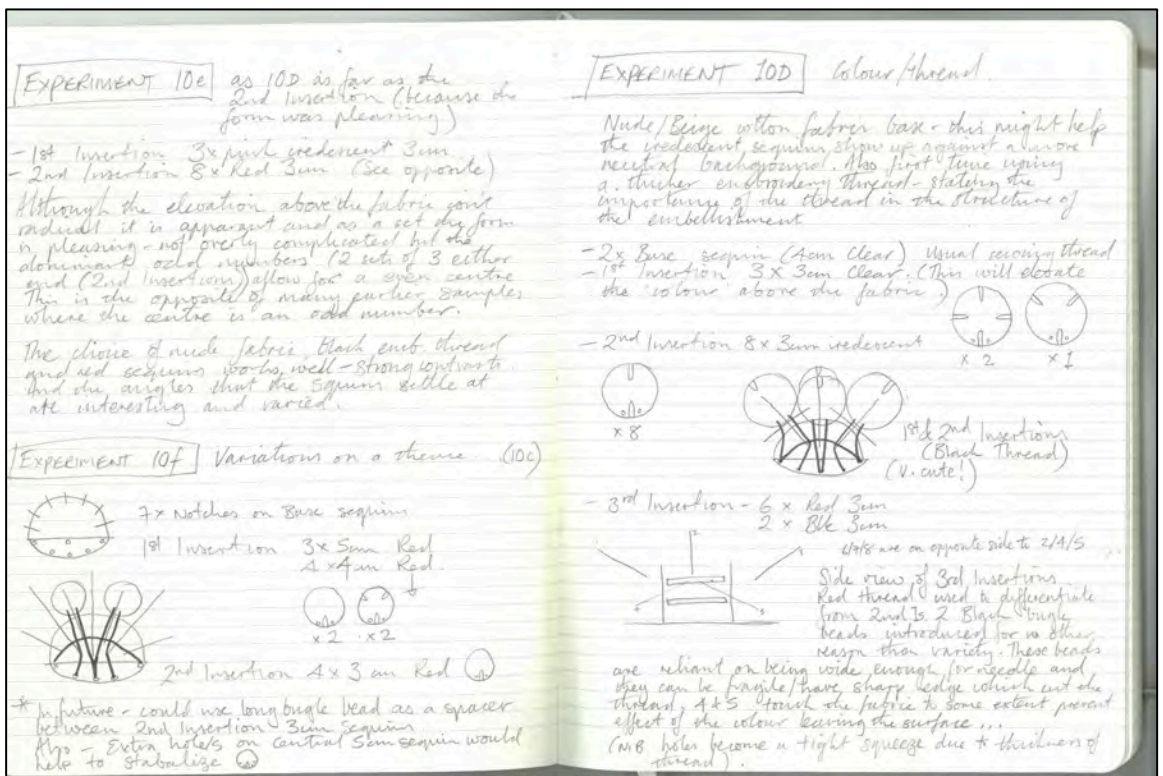 EXPERIMENT 10e as 10D is far as the
2nd Insertion (because the
form was pleasing)
- 1st Insertion 3x pink iredescent 3cm
- 2nd Insertion 8 x Red 3cm (see opposite)
Although the elevation above the fabric isn't
radical it is apparent and as a set the form
is pleasing - not overly complicated but the
dominant odd numbers (2 sets of 3 either
end (2nd Insertions)) allow for a even centre
This is the opposite of many earlier samples
where the centre is an odd number.
The choice of nude fabric, black emb thread
and red sequins works well - strong contrasts.
And the angles that the squins settle at
are interesting and varied.
EXPERIMENT 10f Variations on a theme (10c)
7x Notches on Base sequin
1st Insertion 3 x 5cm Red
4 x 4cm Red.
x 2 x 2
2nd Insertion 4 x 3 cm Red
* In future - could use long bugle bead as a spacer
between 2nd Insertion 3cm sequins
Also - Extra holes on central 5cm sequin would
help to stabalize
EXPERIMENT 10D Colour/thread.
Nude/Beige cotton fabric base - this might help
the iredescent sequins show up against a more
neutral background. Also first time using
a thicker embroidery thread - stating the
importance of the thread in the structure of
the embellishment
- 2x Base sequin (4cm Clear) Usual sewing thread
- 1st Insertion 3 x 3cm Clear. (This will elevate
the 'colour' above the fabric)
x 2 x 1
- 2nd Insertion 8 x 3cm iredescent
x 8
1st & 2nd Insertions
(Black Thread)
(V. cute!)
- 3rd Insertion - 6 x Red 3cm
2 x Blk 3cm
6/7/8 are on opposite side to 2/4/5
Side view of 3rd Insertions.
Red thread used to differentiate
from 2nd Is. 2 Black bugle
beads introduced for no other
reason than variety. These beads
are reliant on being wide enough for needle and
they can be fragile/have sharp edge which cut the
thread. 4 & 5 touch the fabric to some extent prevent
effect of the colour leaving the surface...
(NB holes become a tight squeeze due to thickness of
thread).